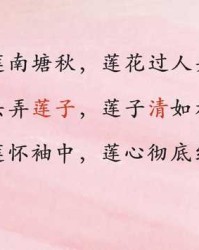 莲南塘秋，莲花过人
弄莲子，莲子清如
莲怀袖中，莲心彻底